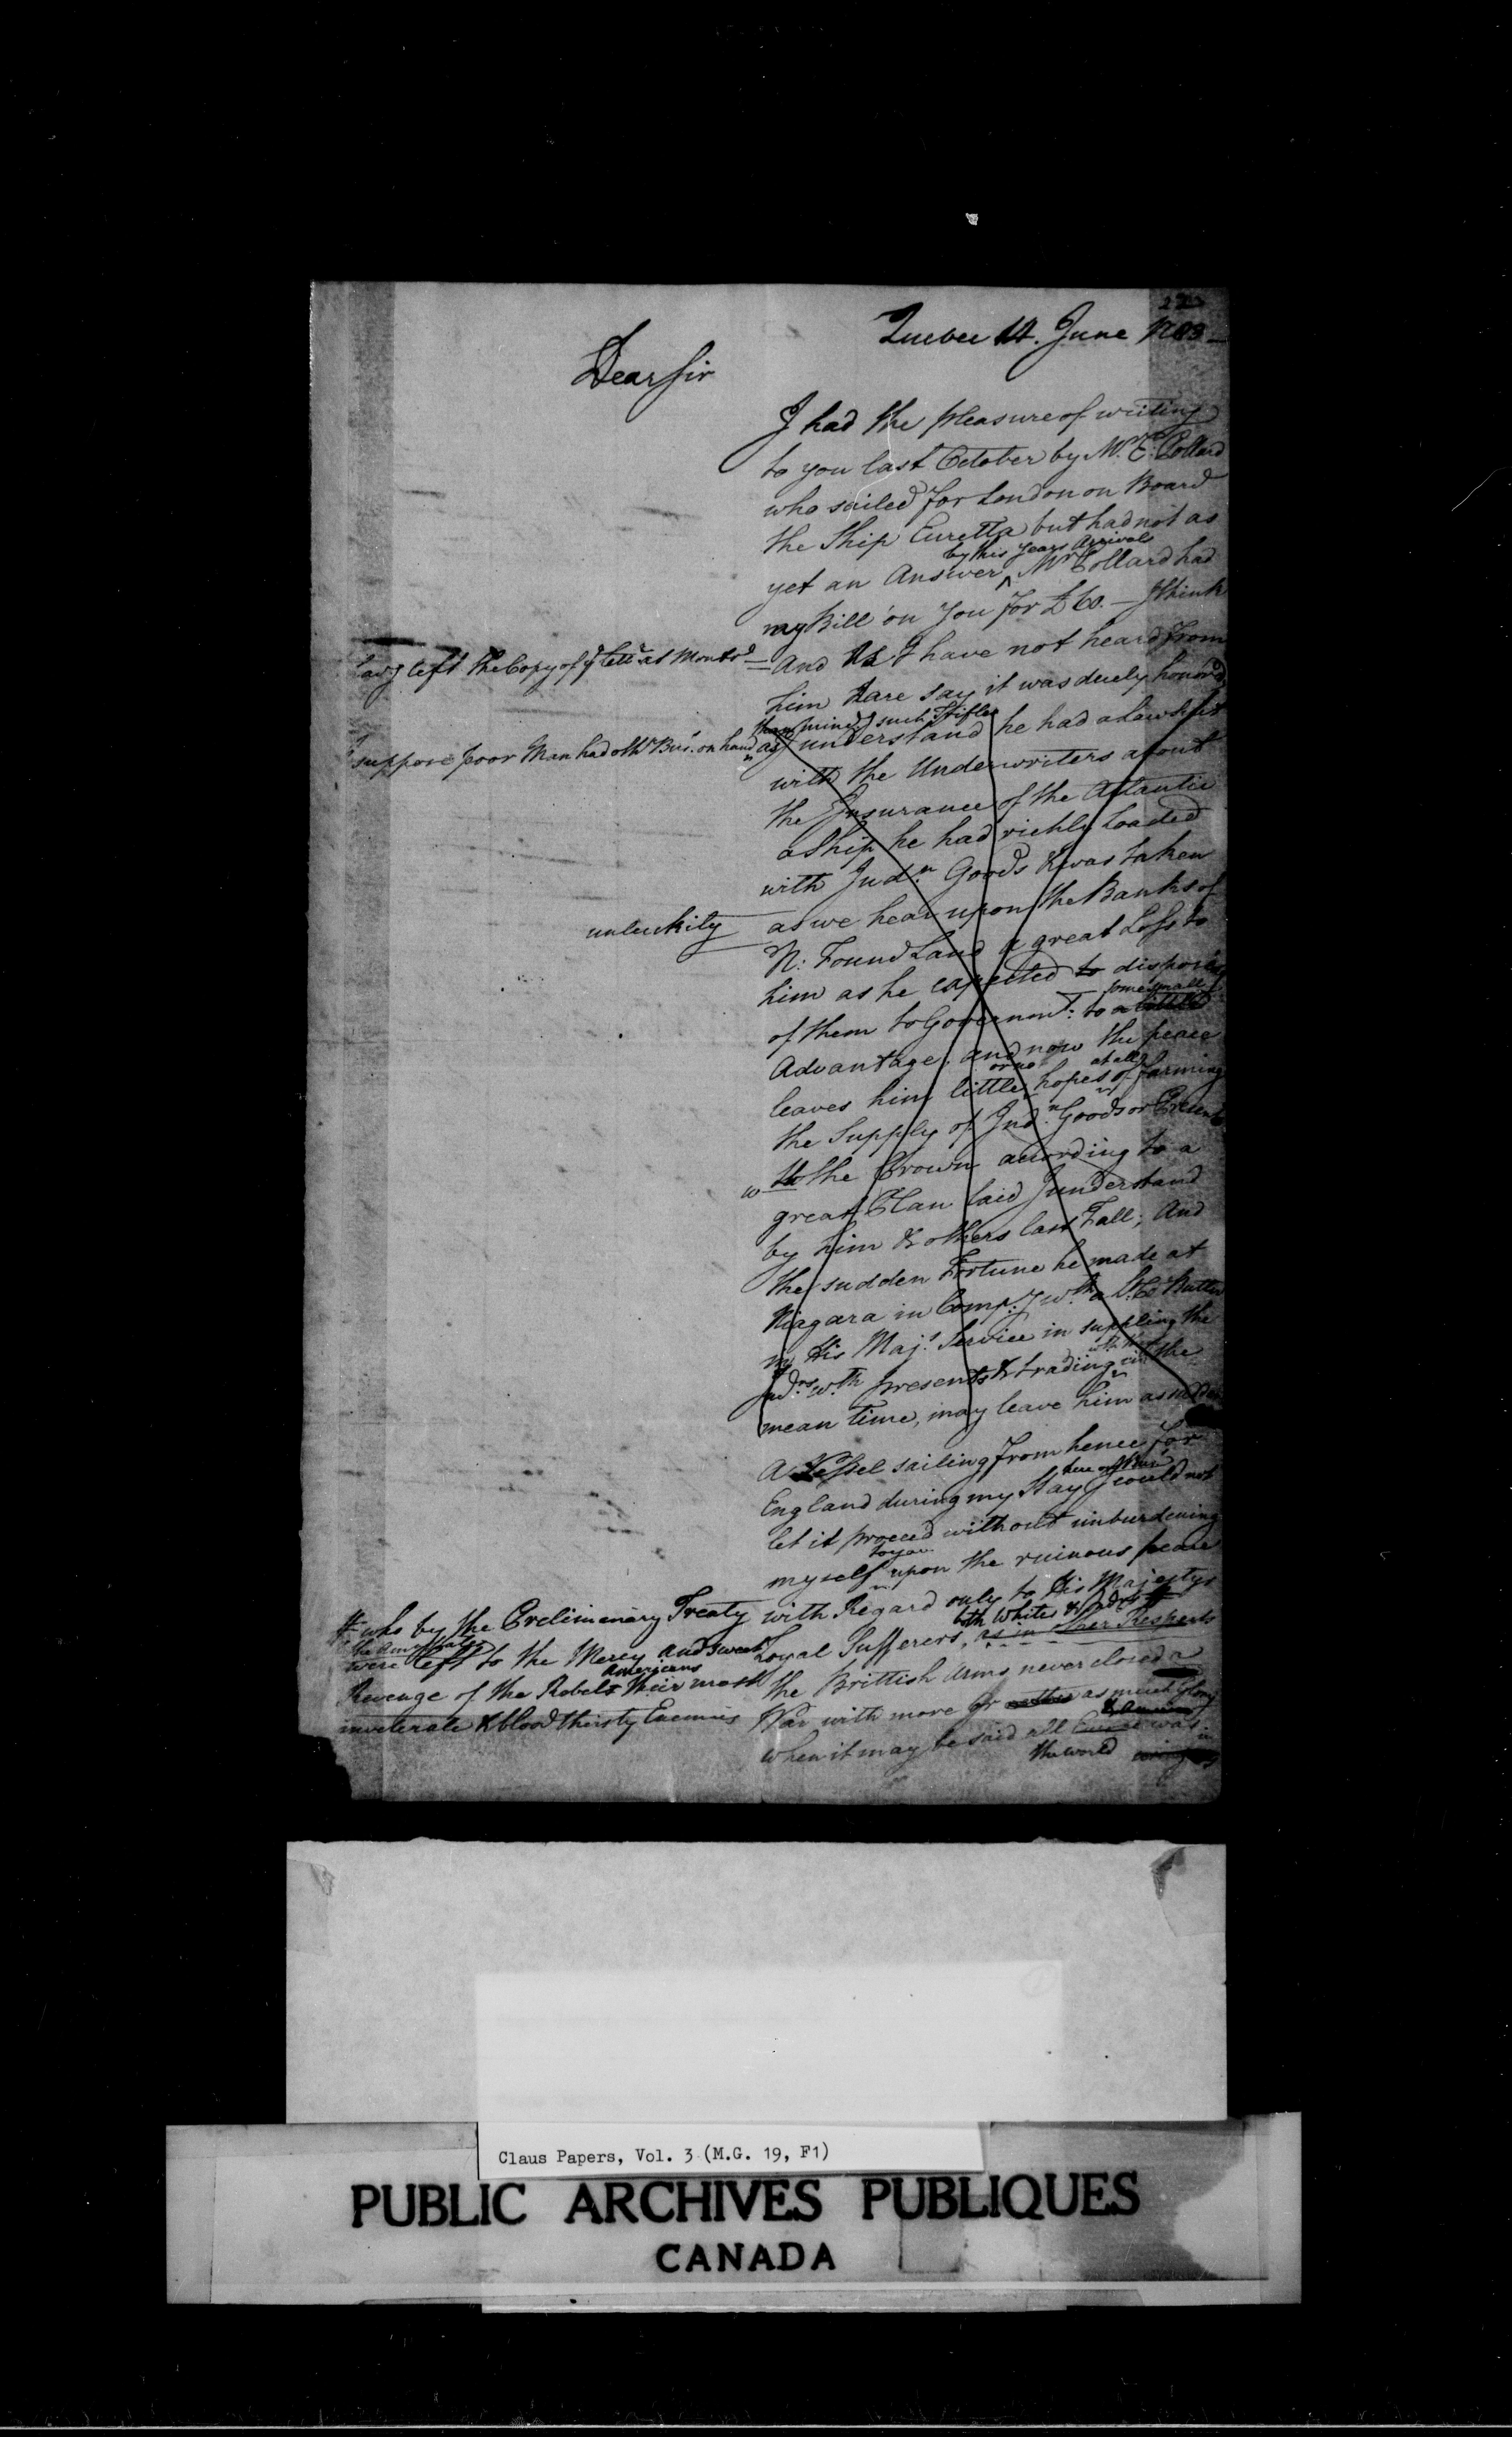 Quebec 14. June 1783
Dear Sir
I had the pleasure of writing
to you last October by Mr. E. Pollard
who sailed for London on Board
the Ship Euretta but had not as
by this years Arrivals
yet an Answer, Mr. Pollard had
my Bill on You for £60. — I think
as I left the Copy of yt. lettr. at Montrl.
— And As I have not heard from
him dare say it was duely honor'd
than mind such Trifles
suppose poor Man had othr. Bus. on hand
as I understand he had a Lawsuit
with the Underwriters about
the Insurance of the Atlantic
a Ship he had richly loaded
with Indn. Goods & was taken
unluckily
as we hear upon the Banks of
N: Found Land a great Loss to
him as he expected to dispose
of them to Governmt. to a
some small
Advantage, and now the peace
or no at all
leaves him little hopes of farming
the Supply of Indn. Goods or Presents
to the Crown according to a
great Plan laid I understand
by him & others last Fall; And
the sudden Fortune he made at
Niagara in Comp.y wth. a Lt. Co Butler
in His Majs. Service in suppling the
Indns. wth. presents & trading in the
mean time, may leave him as sudden
A Vessel sailing from hence for
here on Bus.
England during my Stay I could not
let it proceed without unburdening
to you
myself upon the ruinous peace
with Regard only to His Majestys
both Whites & Inds. #
Loyal Sufferers, as in other Respects
# who by the Prelimenary Treaty
were left to the Mercy and sweet
Americans
Revenge of the Rebels their most
inveterate & blood thirsty Enemies
the Brittish Arms never closed a
War with more or as much Glory
when it may be said all was
the world
Claus Papers, Vol. 3 (M.G. 19, F1)
PUBLIC ARCHIVES PUBLIQUES
CANADA